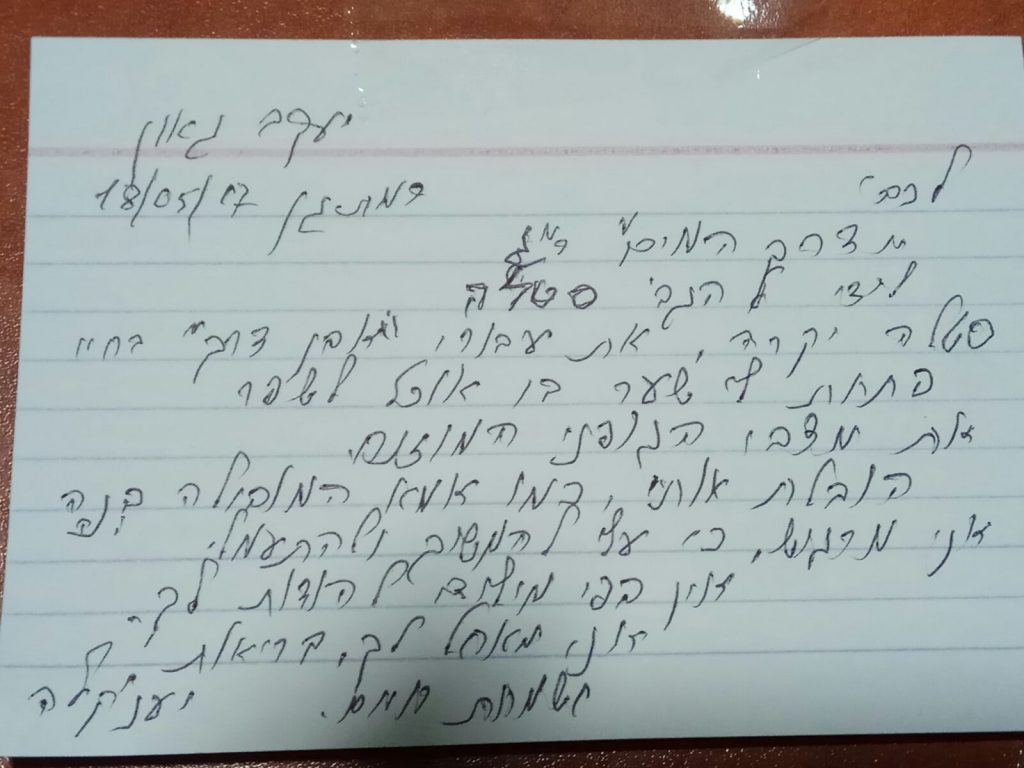 יעקב גאון
רמת גן 18/05/17
לכבי
מדרב המים" רמ"ג
לידי הגב' סטלה
סטלה יקרה, את עבורי "אבן דרך" בחיי
פתחת לי שער בו אוכל לשפר
את מצבי הגופני המוזנח.
הובלת אותי, כמו אמא המובילה בְּנָהּ
אני מרגיש, כי עלי להמשיך ולהתעמל.
אין בפי מילים להודות לך.
אני מאחל לך, בריאות
ושמחת חיים. יענק'לה